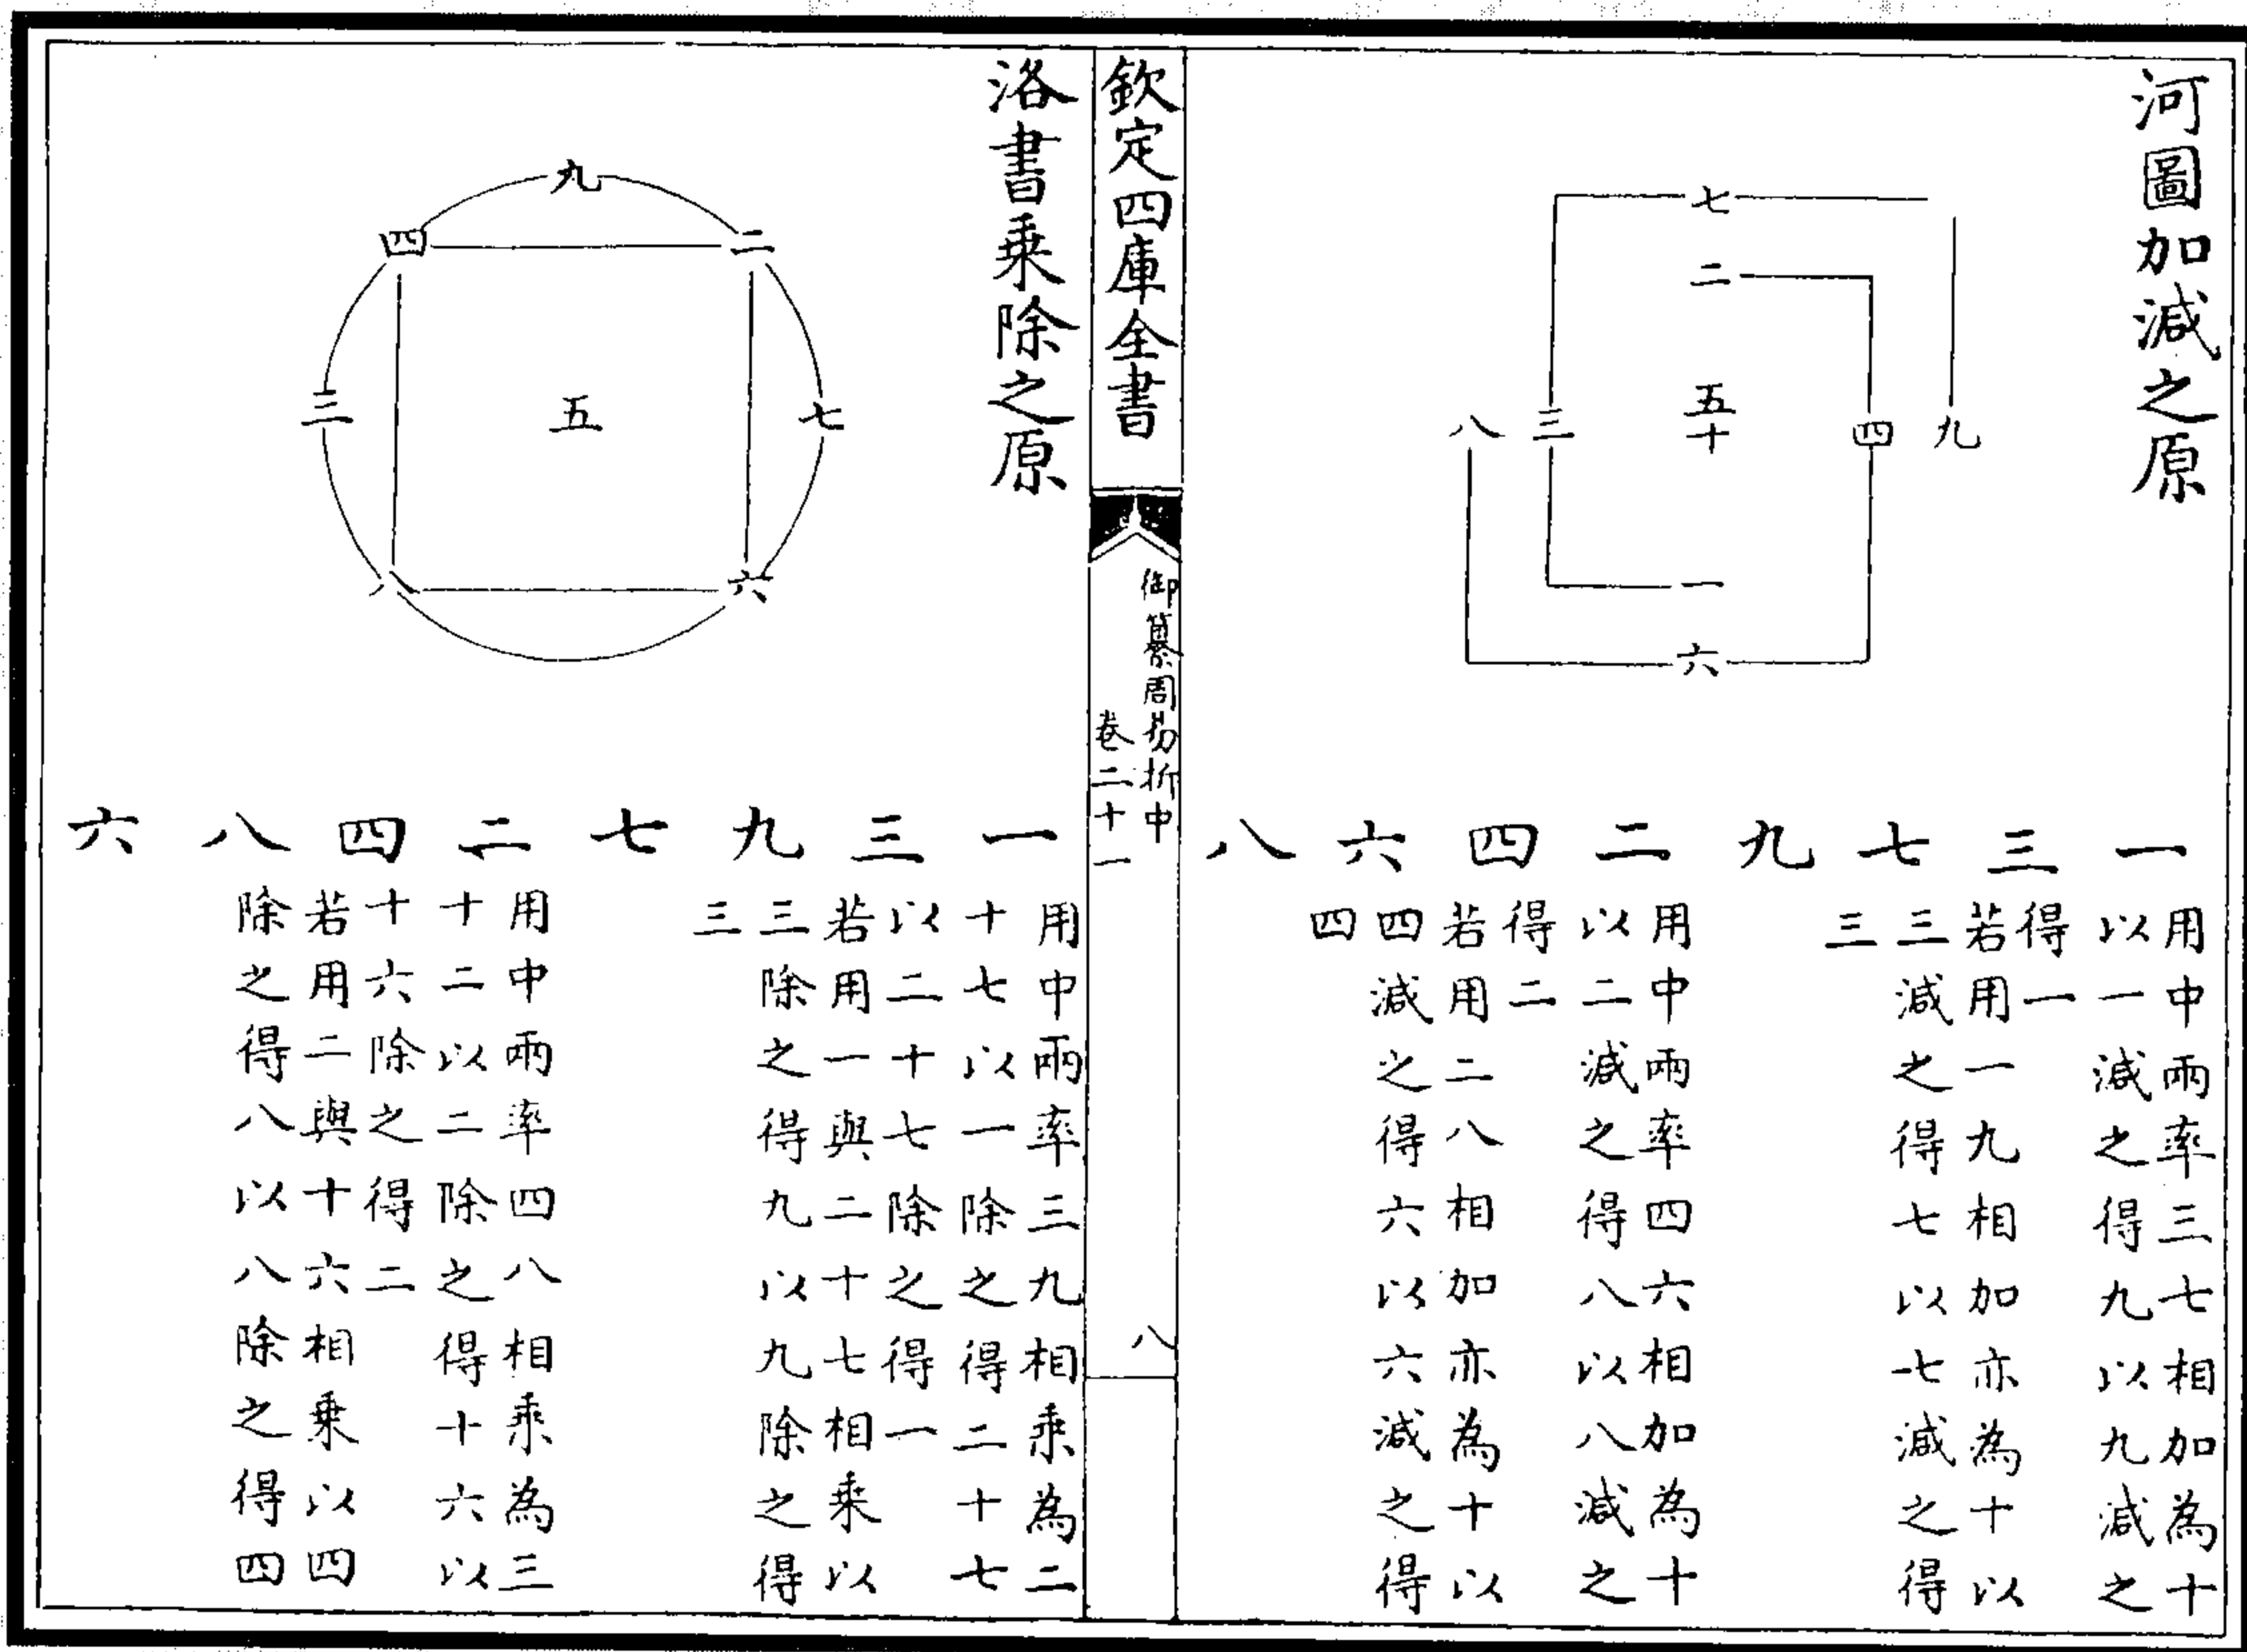 河圖加減之原
七
二
九
四
五十
三
八
一
六
一三七九二四六八
用中兩率三七相加為十
以一減之得九以九減之
得一
若用一九相加亦為十以
三減之得七以七減之得
三
用中兩率四六相加為十
以二減之得八以八減之
得二
若用二八相加亦為十以
四減之得六以六減之得
四
欽定四庫全書
御纂周易折中
卷二十一
八
洛書乗除之原
九
二
四
七
五
三
六
八
一三九七二四八六
用中兩率三九相乗為二
十七以一除之得二十七
以二十七除之得一
若用一與二十七相乗以
三除之得九以九除之得
三
用中兩率四八相乗為三
十二以二除之得十六以
十六除之得二
若用二與十六相乗以四
除之得八以八除之得四